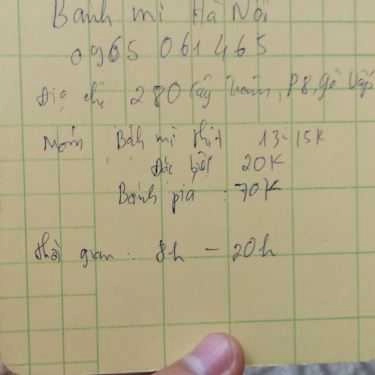 Bánh mì Hà Nội
0965 061 465
Địa chỉ 280 Cây Trâm, P8, Gò Vấp
Món Bánh mì thịt 13-15K
Đặc biệt 20K
Bánh pía : 70K
thời gian : 8h - 20h